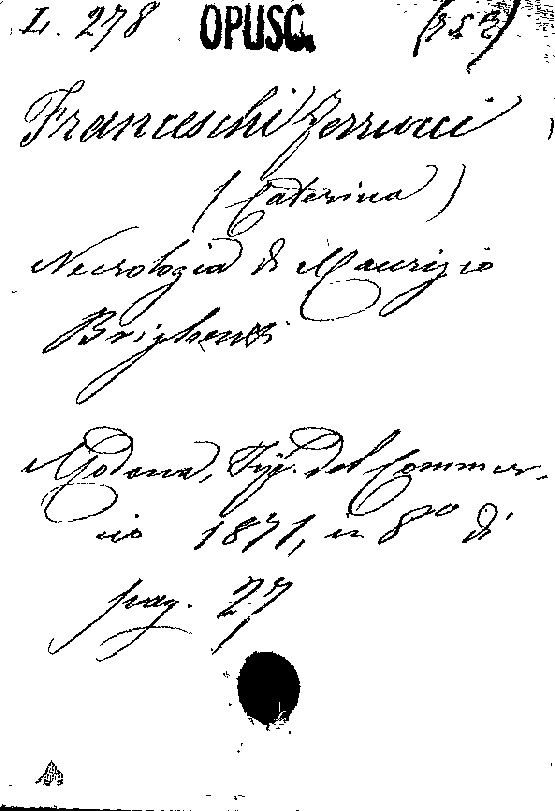 L. 278 OPUSC. (353)
Franceschi Ferrucci
(Caterina)
Necrologia di Maurizio
Brighenti
Modena, Tip. del Commer-
cio 1871, in 8vo di
pag. 27